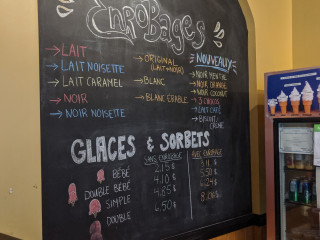 ENROBAGES
→LAIT
→LAIT NOISETTE
→LAIT CARAMEL
→NOIR
→NOIR NOISETTE
→ORIGINAL
(LAIT+NOIR)
→BLANC
→BLANC ÉRABLE
NOUVEAU
→NOIR MENTHE
→NOIR ORANGE
→NOIR COCONUT
→3 CHOCOS
→LAIT CAFÉ
→BISCUIT
CRÈME
GLACES & SORBETS
SANS ENROBAGE
AVEC ENROBAGE
BÉBÉ
DOUBLE BÉBÉ 4.10 $ 5.50 $
SIMPLE 4.85 $ 6.24 $
DOUBLE 6.50 $